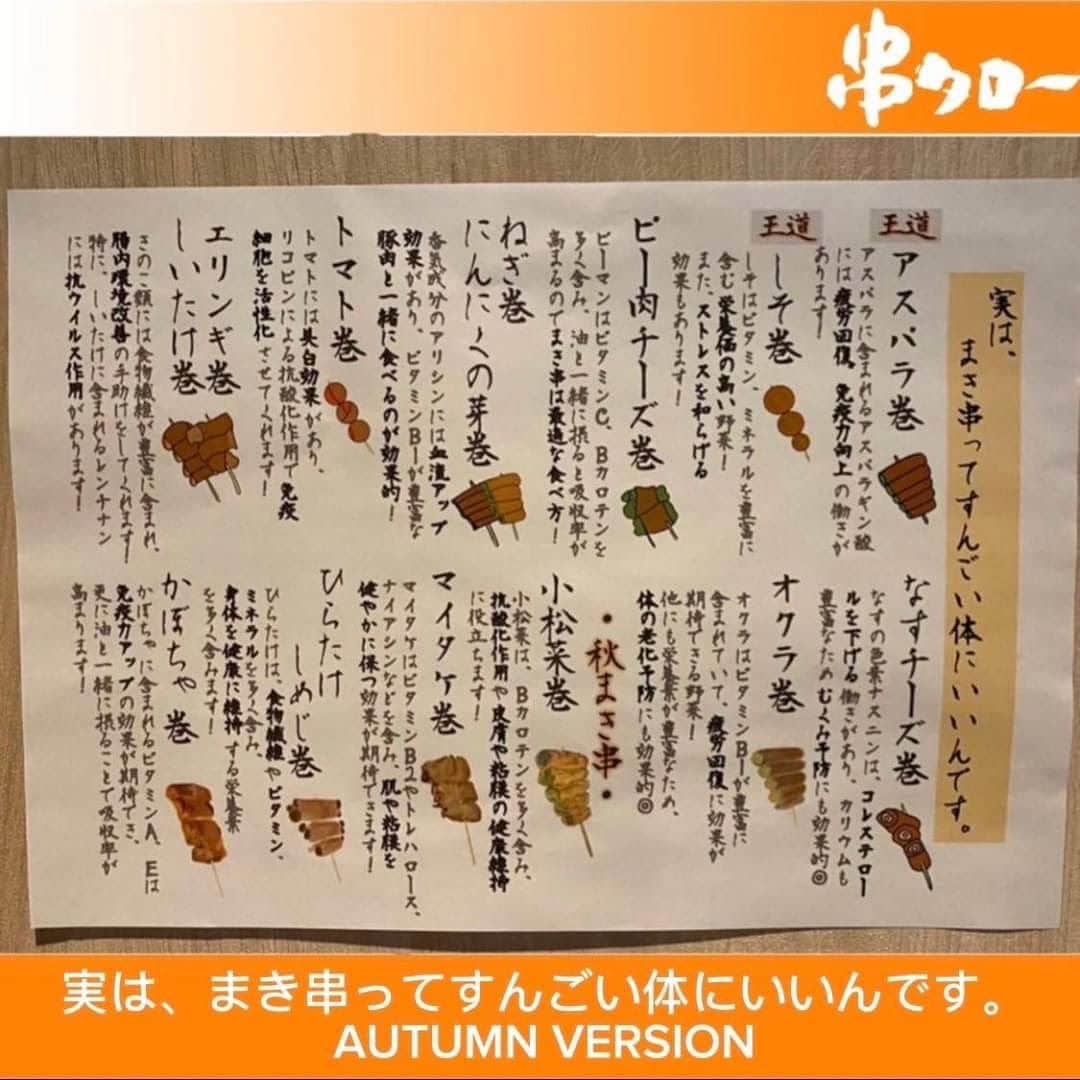 串クロー
実は、
まき串ってすんごい体にいいんです。
王道
アスパラ巻
アスパラに含まれるアスパラギン酸
には疲労回復、免疫力向上の働きが
あります！
王道
しそ巻
しそはビタミン、ミネラルを豊富に
含む栄養価の高い野菜！
また、ストレスを和らげる
効果もあります！
ピー肉チーズ巻
ピーマンはビタミンC、Bカロテンを
多く含み、油と一緒に摂ると吸収率が
高まるのでまき串は最適な食べ方！
ねぎ巻
にんにくの芽巻
香気成分のアリシンには血流アップ
効果があり、ビタミンB1が豊富な
豚肉と一緒に食べるのが効果的！
トマト巻
トマトには美白効果があり、
リコピンによる抗酸化作用で免疫
細胞を活性化させてくれます！
エリンギ巻
しいたけ巻
きのこ類には食物繊維が豊富に含まれ、
腸内環境改善の手助けをしてくれます！
特に、しいたけに含まれるレンチナン
には抗ウイルス作用があります！
なすチーズ巻
なすの色素ナスニンは、コレステロー
ルを下げる働きがあり、カリウムも
豊富なためむくみ予防にも効果的◎
オクラ巻
オクラはビタミンB1が豊富に
含まれていて、疲労回復に効果が
期待できる野菜！
他にも栄養素が豊富なため、
体の老化予防にも効果的◎
・秋まき串・
小松菜巻
小松菜は、Bカロテンを多く含み、
抗酸化作用や皮膚や粘膜の健康維持
に役立ちます！
マイタケ巻
マイタケはビタミンB2やトレハロース、
ナイアシンなどを含み、肌や粘膜を
健やかに保つ効果が期待できます！
ひらたけ
しめじ巻
ひらたけは、食物繊維やビタミン、
ミネラルを多く含み、
身体を健康に維持する栄養素
を多く含みます！
かぼちゃ巻
かぼちゃに含まれるビタミンA、Eは
免疫力アップの効果が期待でき、
更に油と一緒に摂ることで吸収率が
高まります！
実は、まき串ってすんごい体にいいんです。
AUTUMN VERSION